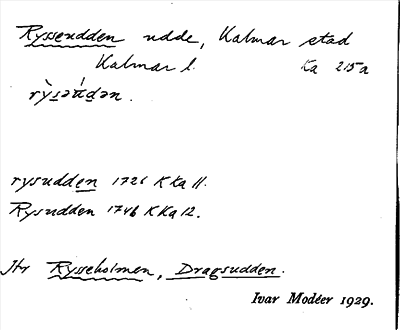 Rysseudden udde, Kalmar stad
Kalmar l. Ka 215a
rysudden 1726 K Ka 11.
Rysudden 1746 K Ka 12.
Jfr Rysseholmen, Dragsudden.
Ivar Modéer 1929.